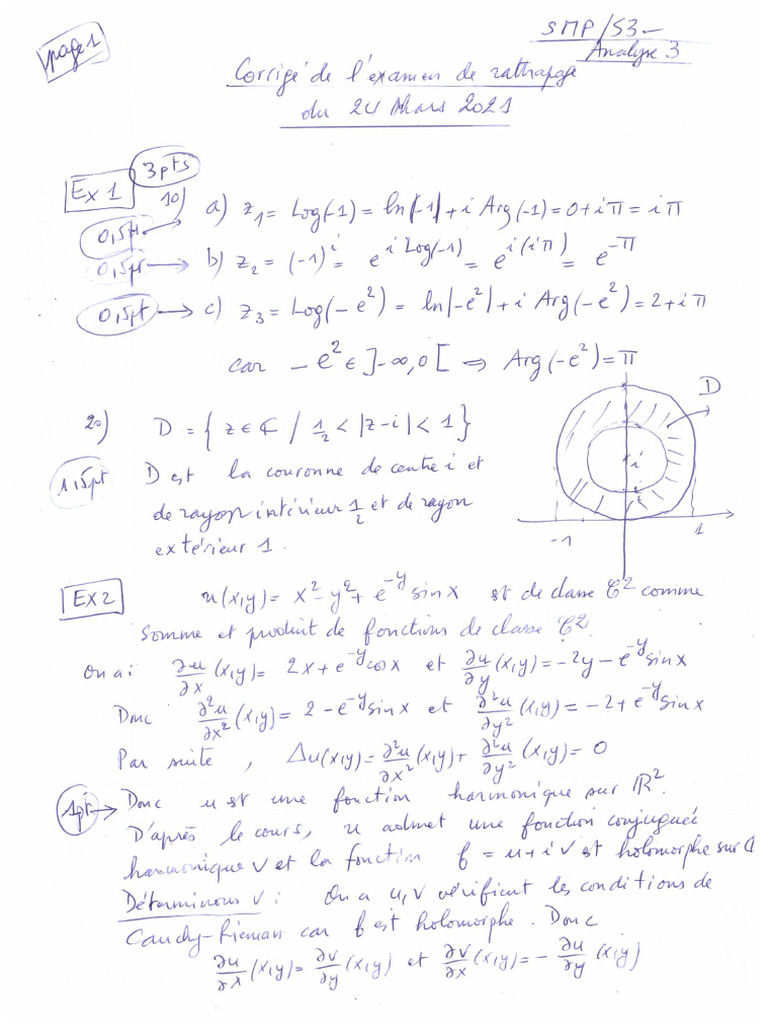 page 1
SMP/S3-
Analyse 3
Corrigé de l'examen de rattrapage
du 24 Mars 2021
Ex 1 3pts
0,5pt → 1°) a) z₁ = Log(-1) = ln|-1| + i Arg(-1) = 0 + iπ = iπ
0,5pt → b) z₂ = (-1)^i = e^{i Log(-1)} = e^{i(iπ)} = e^{-π}
0,5pt → c) z₃ = Log(-e²) = ln|-e²| + i Arg(-e²) = 2 + iπ
car -e² ∈ ]-∞,0[ ⇒ Arg(-e²) = π
2°) D = { z ∈ ℂ / 1/2 < |z-i| < 1 }
D
i
-1 1
1,5pt D est la couronne de centre i et
de rayon intérieur 1/2 et de rayon
extérieur 1.
Ex 2 u(x,y) = x² - y² + e^{-y} sin x est de classe C² comme
somme et produit de fonctions de classe C².
On a : ∂u/∂x (x,y) = 2x + e^{-y} cos x et ∂u/∂y (x,y) = -2y - e^{-y} sin x
Donc ∂²u/∂x² (x,y) = 2 - e^{-y} sin x et ∂²u/∂y² (x,y) = -2 + e^{-y} sin x
Par suite, Δu(x,y) = ∂²u/∂x² (x,y) + ∂²u/∂y² (x,y) = 0
1pt → Donc u est une fonction harmonique sur ℝ².
D'après le cours, u admet une fonction conjuguée
harmonique v et la fonction f = u + i v est holomorphe sur ℂ
Déterminons v : On a u, v vérifient les conditions de
Cauchy-Rieman car f est holomorphe. Donc
∂u/∂x (x,y) = ∂v/∂y (x,y) et ∂v/∂x (x,y) = - ∂u/∂y (x,y)